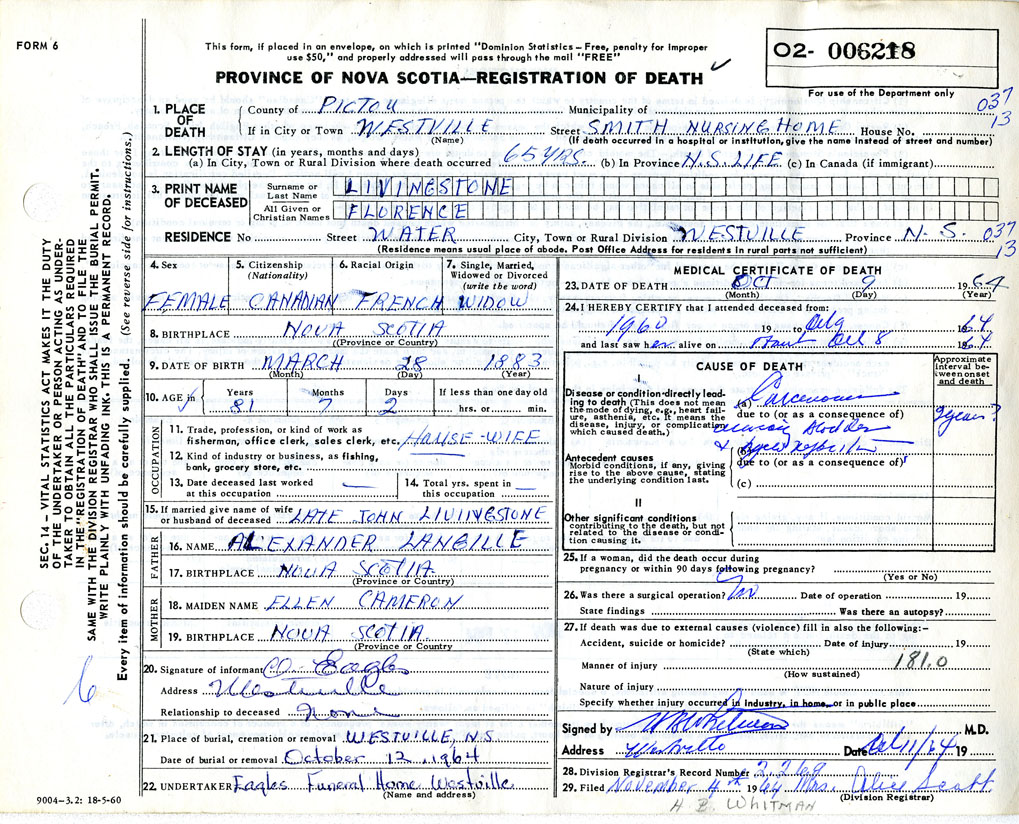 FORM 6
This form, if placed in an envelope, on which is printed "Dominion Statistics – Free, penalty for improper
use $50," and properly addressed will pass through the mail "FREE"
PROVINCE OF NOVA SCOTIA—REGISTRATION OF DEATH ✓
O2- 006218
For use of the Department only
037
13
1. PLACE OF DEATH
County of PICTOU Municipality of
If in City or Town WESTVILLE Street SMITH NURSING HOME House No.
(Name) (If death occurred in a hospital or institution, give the name instead of street and number)
2. LENGTH OF STAY (in years, months and days)
(a) In City, Town or Rural Division where death occurred 65 YRS. (b) In Province N.S. LIFE (c) In Canada (if immigrant)
3. PRINT NAME OF DECEASED
Surname or Last Name LIVINESTONE
All Given or Christian Names FLORENCE
RESIDENCE No Street WATER City, Town or Rural Division WESTVILLE Province N. S. 037
13
(Residence means usual place of abode. Post Office Address for residents in rural parts not sufficient)
4. Sex FEMALE
5. Citizenship (Nationality) CANADIAN
6. Racial Origin FRENCH
7. Single, Married, Widowed or Divorced (write the word) WIDOW
8. BIRTHPLACE NOVA SCOTIA
(Province or Country)
9. DATE OF BIRTH MARCH 28 1883
(Month) (Day) (Year)
10. AGE in Years 81 Months 7 Days 2 If less than one day old hrs. or min.
OCCUPATION
11. Trade, profession, or kind of work as
fisherman, office clerk, sales clerk, etc. HOUSE-WIFE
12. Kind of industry or business, as fishing,
bank, grocery store, etc.
13. Date deceased last worked
at this occupation —
14. Total yrs. spent in
this occupation —
15. If married give name of wife
or husband of deceased LATE JOHN LIVINGSTONE
FATHER
16. NAME ALEXANDER LANGILLE
17. BIRTHPLACE NOVA SCOTIA.
(Province or Country)
MOTHER
18. MAIDEN NAME ELLEN CAMERON
19. BIRTHPLACE NOVA SCOTIA
(Province or Country)
20. Signature of informant Eagles
Address Westville
Relationship to deceased None
21. Place of burial, cremation or removal WESTVILLE, N.S.
Date of burial or removal October 12, 1964
22. UNDERTAKER Eagles Funeral Home Westville
(Name and address)
9004-3.2: 18-5-60
MEDICAL CERTIFICATE OF DEATH
23. DATE OF DEATH OCT 9 1964
(Month) (Day) (Year)
24. I HEREBY CERTIFY that I attended deceased from:
1960 19 to 1964
and last saw her alive on Oct 8 1964
CAUSE OF DEATH
Approximate interval between onset and death
I
Disease or condition directly leading to death (This does not mean the mode of dying, e.g., heart failure, asthenia, etc. It means the disease, injury, or complication which caused death.)
(a) Carcenoma
due to (or as a consequence of)
bladder
(b)
due to (or as a consequence of)
(c)
2 years?
Antecedent causes
Morbid conditions, if any, giving rise to the above cause, stating the underlying condition last.
II
Other significant conditions
contributing to the death, but not related to the disease or condition causing it.
25. If a woman, did the death occur during
pregnancy or within 90 days following pregnancy?
(Yes or No)
26. Was there a surgical operation? No Date of operation 19
State findings Was there an autopsy?
27. If death was due to external causes (violence) fill in also the following:–
Accident, suicide or homicide? Date of injury 19
(State which)
Manner of injury 181.0
(How sustained)
Nature of injury
Specify whether injury occurred in industry, in home, or in public place
Signed by H B Whitman M.D.
Address Westville Date Oct 11/64 19
28. Division Registrar's Record Number 2268
29. Filed November 4th 1964 Mrs. Alice Scott
(Division Registrar)
H B WHITMAN
SEC. 14 – VITAL STATISTICS ACT MAKES IT THE DUTY
OF THE UNDERTAKER OR PERSON ACTING AS UNDER-
TAKER TO OBTAIN ALL THE PARTICULARS REQUIRED
IN THE "REGISTRATION OF DEATH" AND TO FILE THE
SAME WITH THE DIVISION REGISTRAR WHO SHALL ISSUE THE BURIAL PERMIT.
WRITE PLAINLY WITH UNFADING INK. THIS IS A PERMANENT RECORD.
Every item of information should be carefully supplied. (See reverse side for instructions.)
6